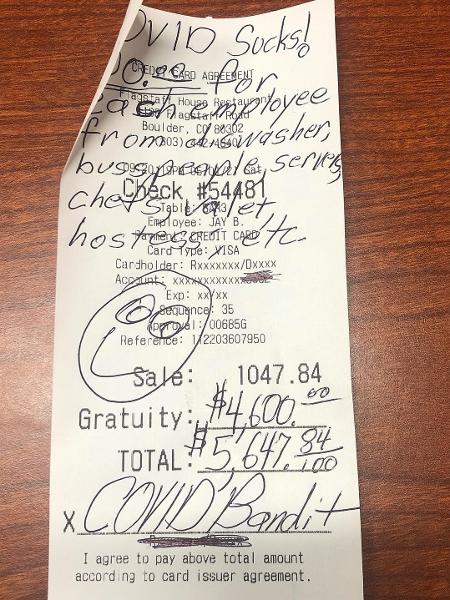 OVID Sucks!
00.00 for
CREDIT CARD AGREEMENT
each employee
Flagstaff House Restaurant
Flagstaff Road
from dishwasher,
Boulder, CO 80302
bus people, servers,
Sat
Check #54481
chefs, valet,
Table:
Employee: JAY B.
hostess, etc.
Payment: CREDIT CARD
Card Type: VISA
Cardholder: Rxxxxxxx/Dxxxx
Account: xxxxxxxxxxxx
Exp: xx/xx
Sequence: 35
Approval: 00685G
Reference: 112203607950
Sale: 1047.84
Gratuity: $4,600.00
TOTAL: $5,647.84/100
X COVID Bandit
I agree to pay above total amount
according to card issuer agreement.